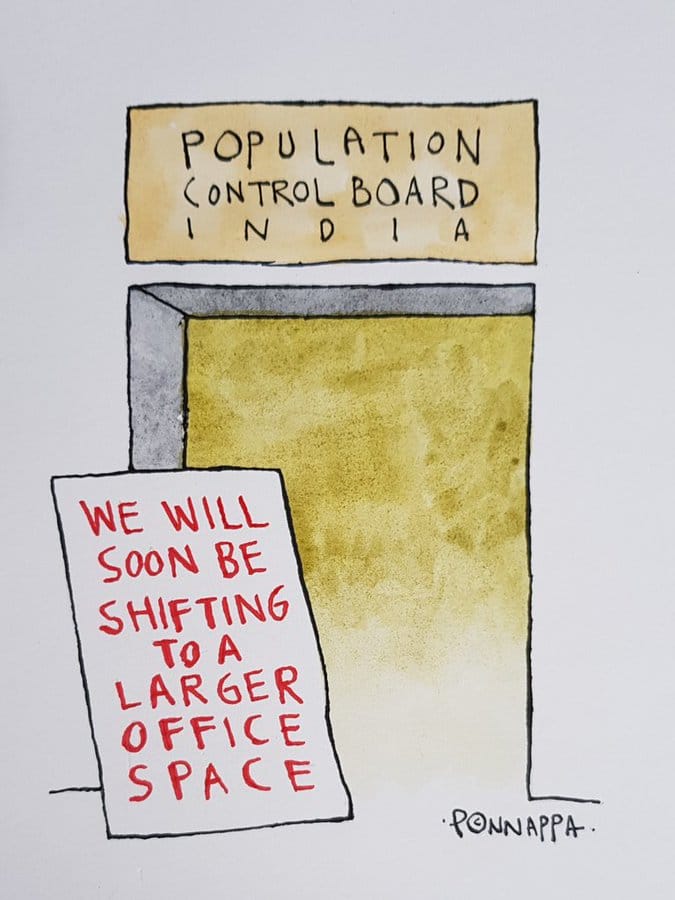 POPULATION
CONTROL BOARD
INDIA
WE WILL
SOON BE
SHIFTING
TO A
LARGER
OFFICE
SPACE
·P©NNAPPA·